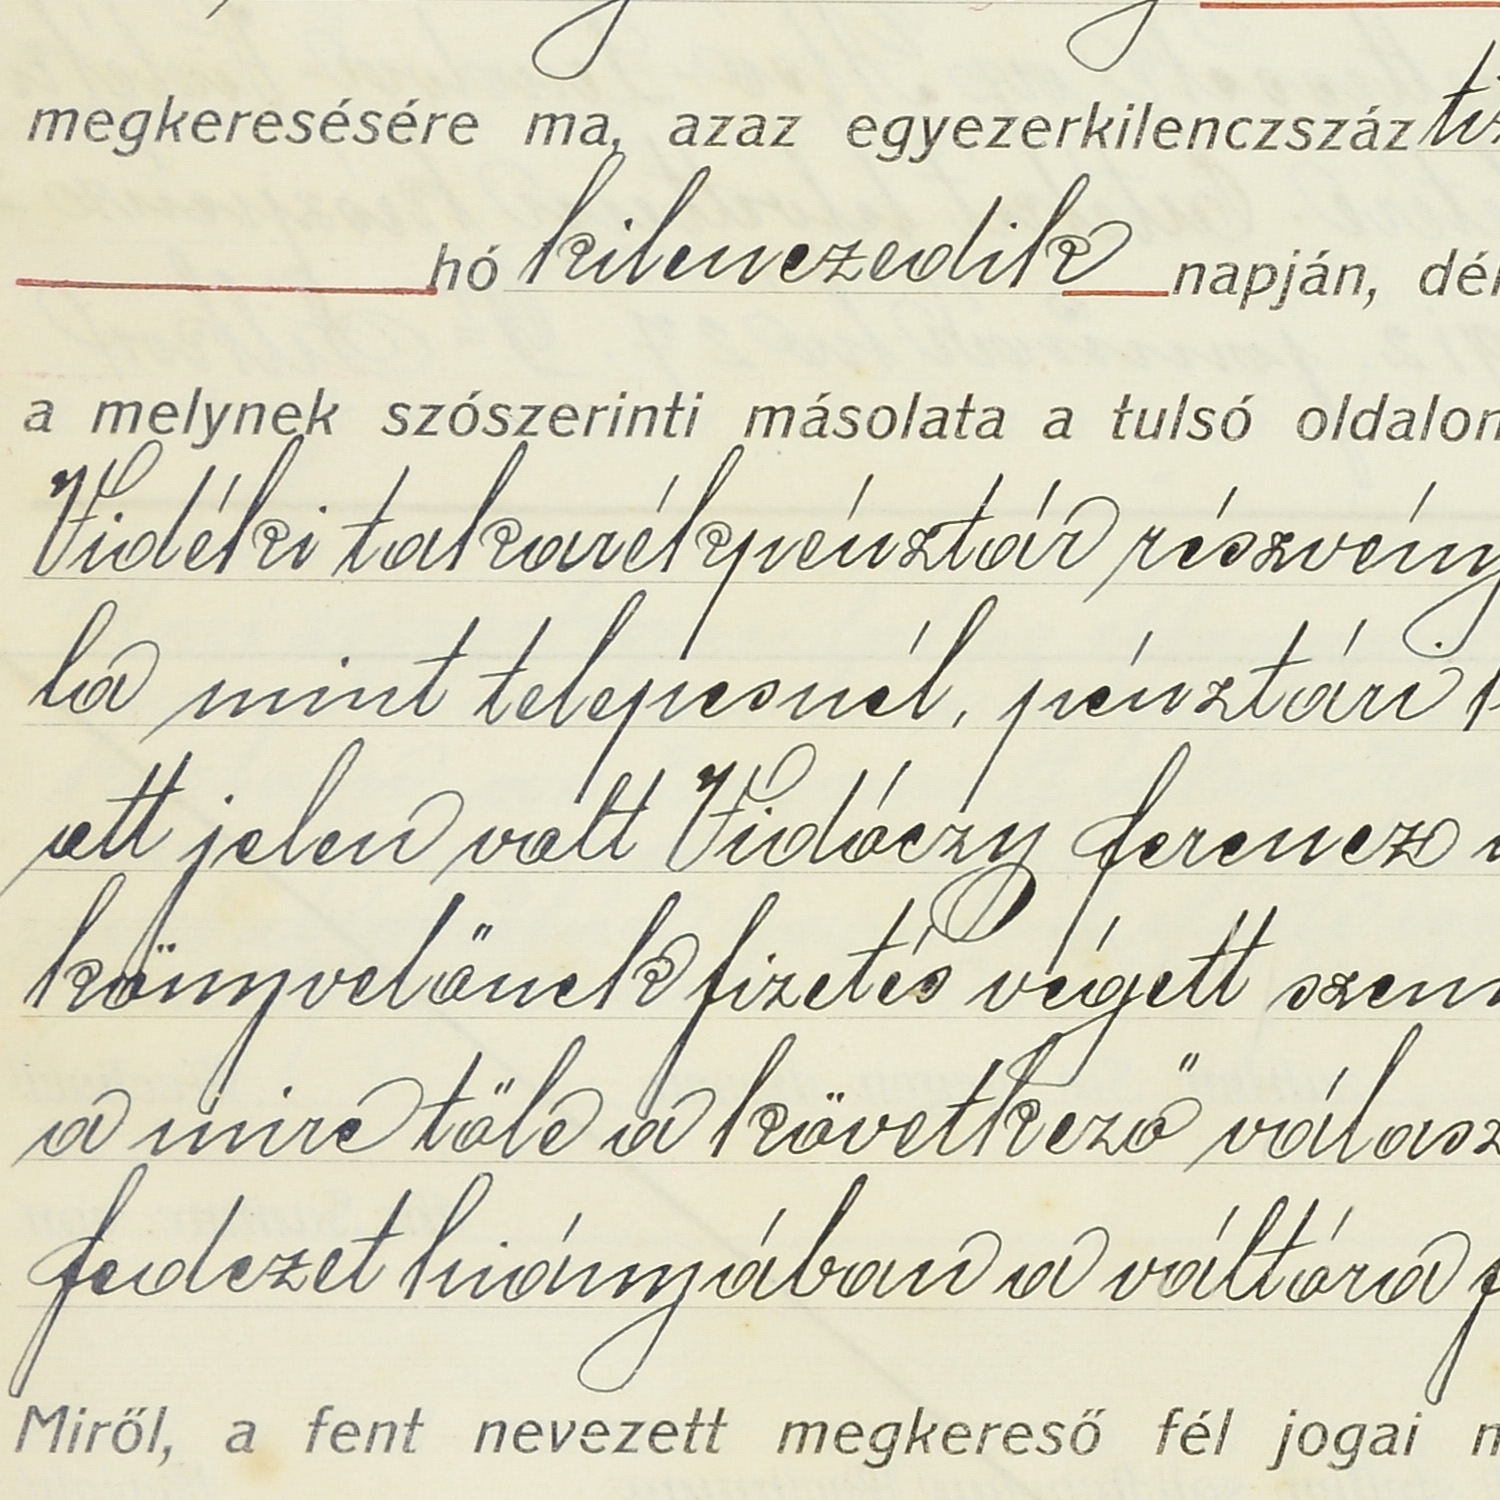 megkeresésére ma, azaz egyezerkilenczszáz
hó kilenczedik napján, dél
a melynek szószerinti másolata a tulsó oldalon
Vidéki takarékpénztár részvény
la mint telepesnél, pénztári
att jelen valt Vidóczy ferencz
könyvelőnek fizetés végett szem
a mire tőle a következő válasz
fedezet hiányában a váltóra f
Miről, a fent nevezett megkereső fél jogai